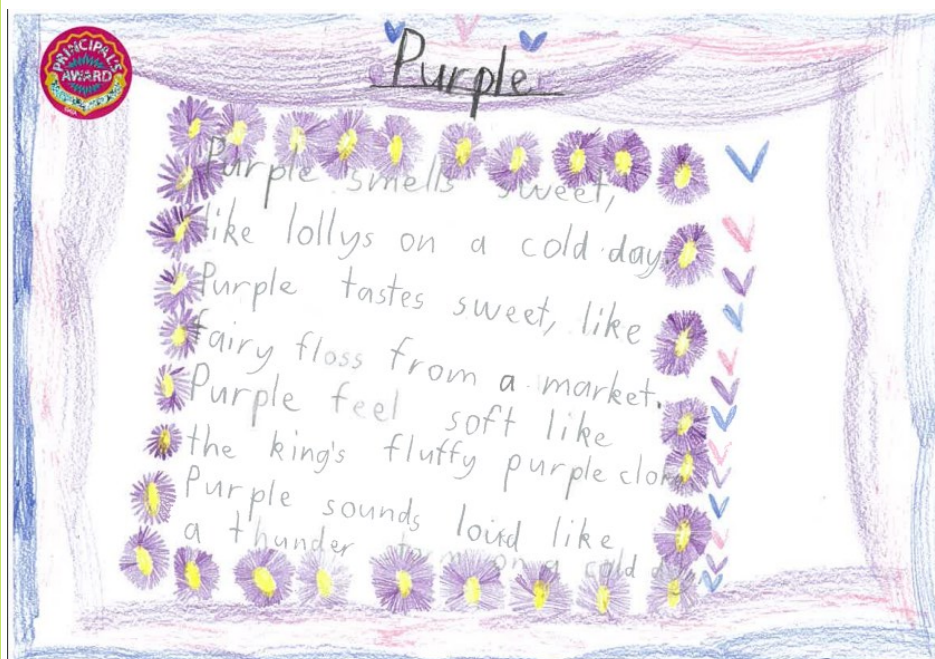 PRINCIPAL'S
AWARD
Purple
Purple smells sweet,
like lollys on a cold day
Purple tastes sweet, like
fairy floss from a market.
Purple feel soft like
the king's fluffy purple
Purple sounds loud like
a thunder on a cold